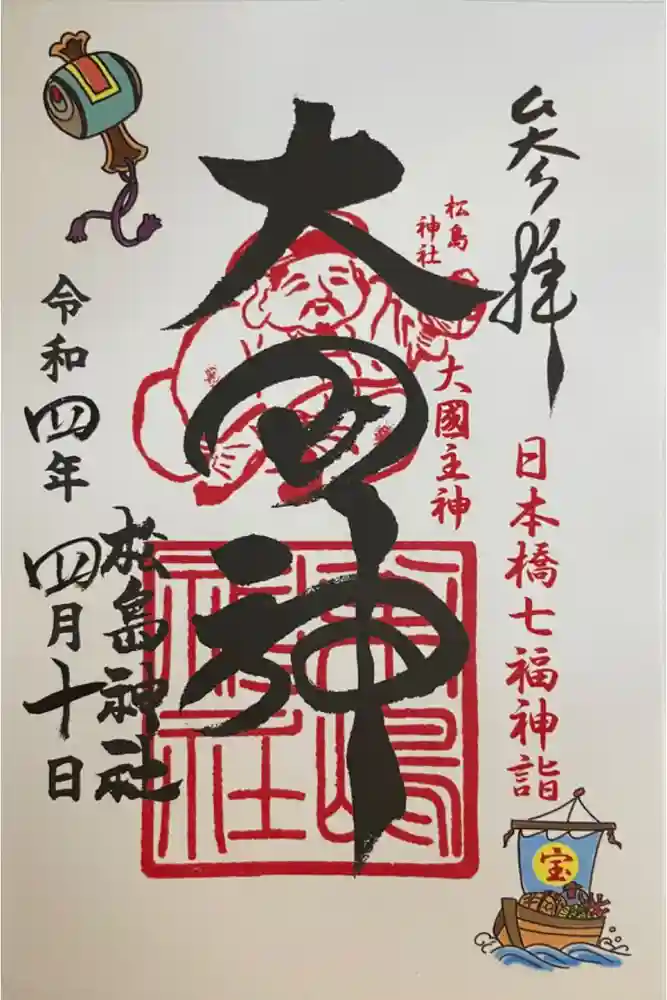 参拝
日本橋七福神詣
松島
神社
大國主神
大国神
松嶋
神社
松島神社
令和四年四月十日
宝